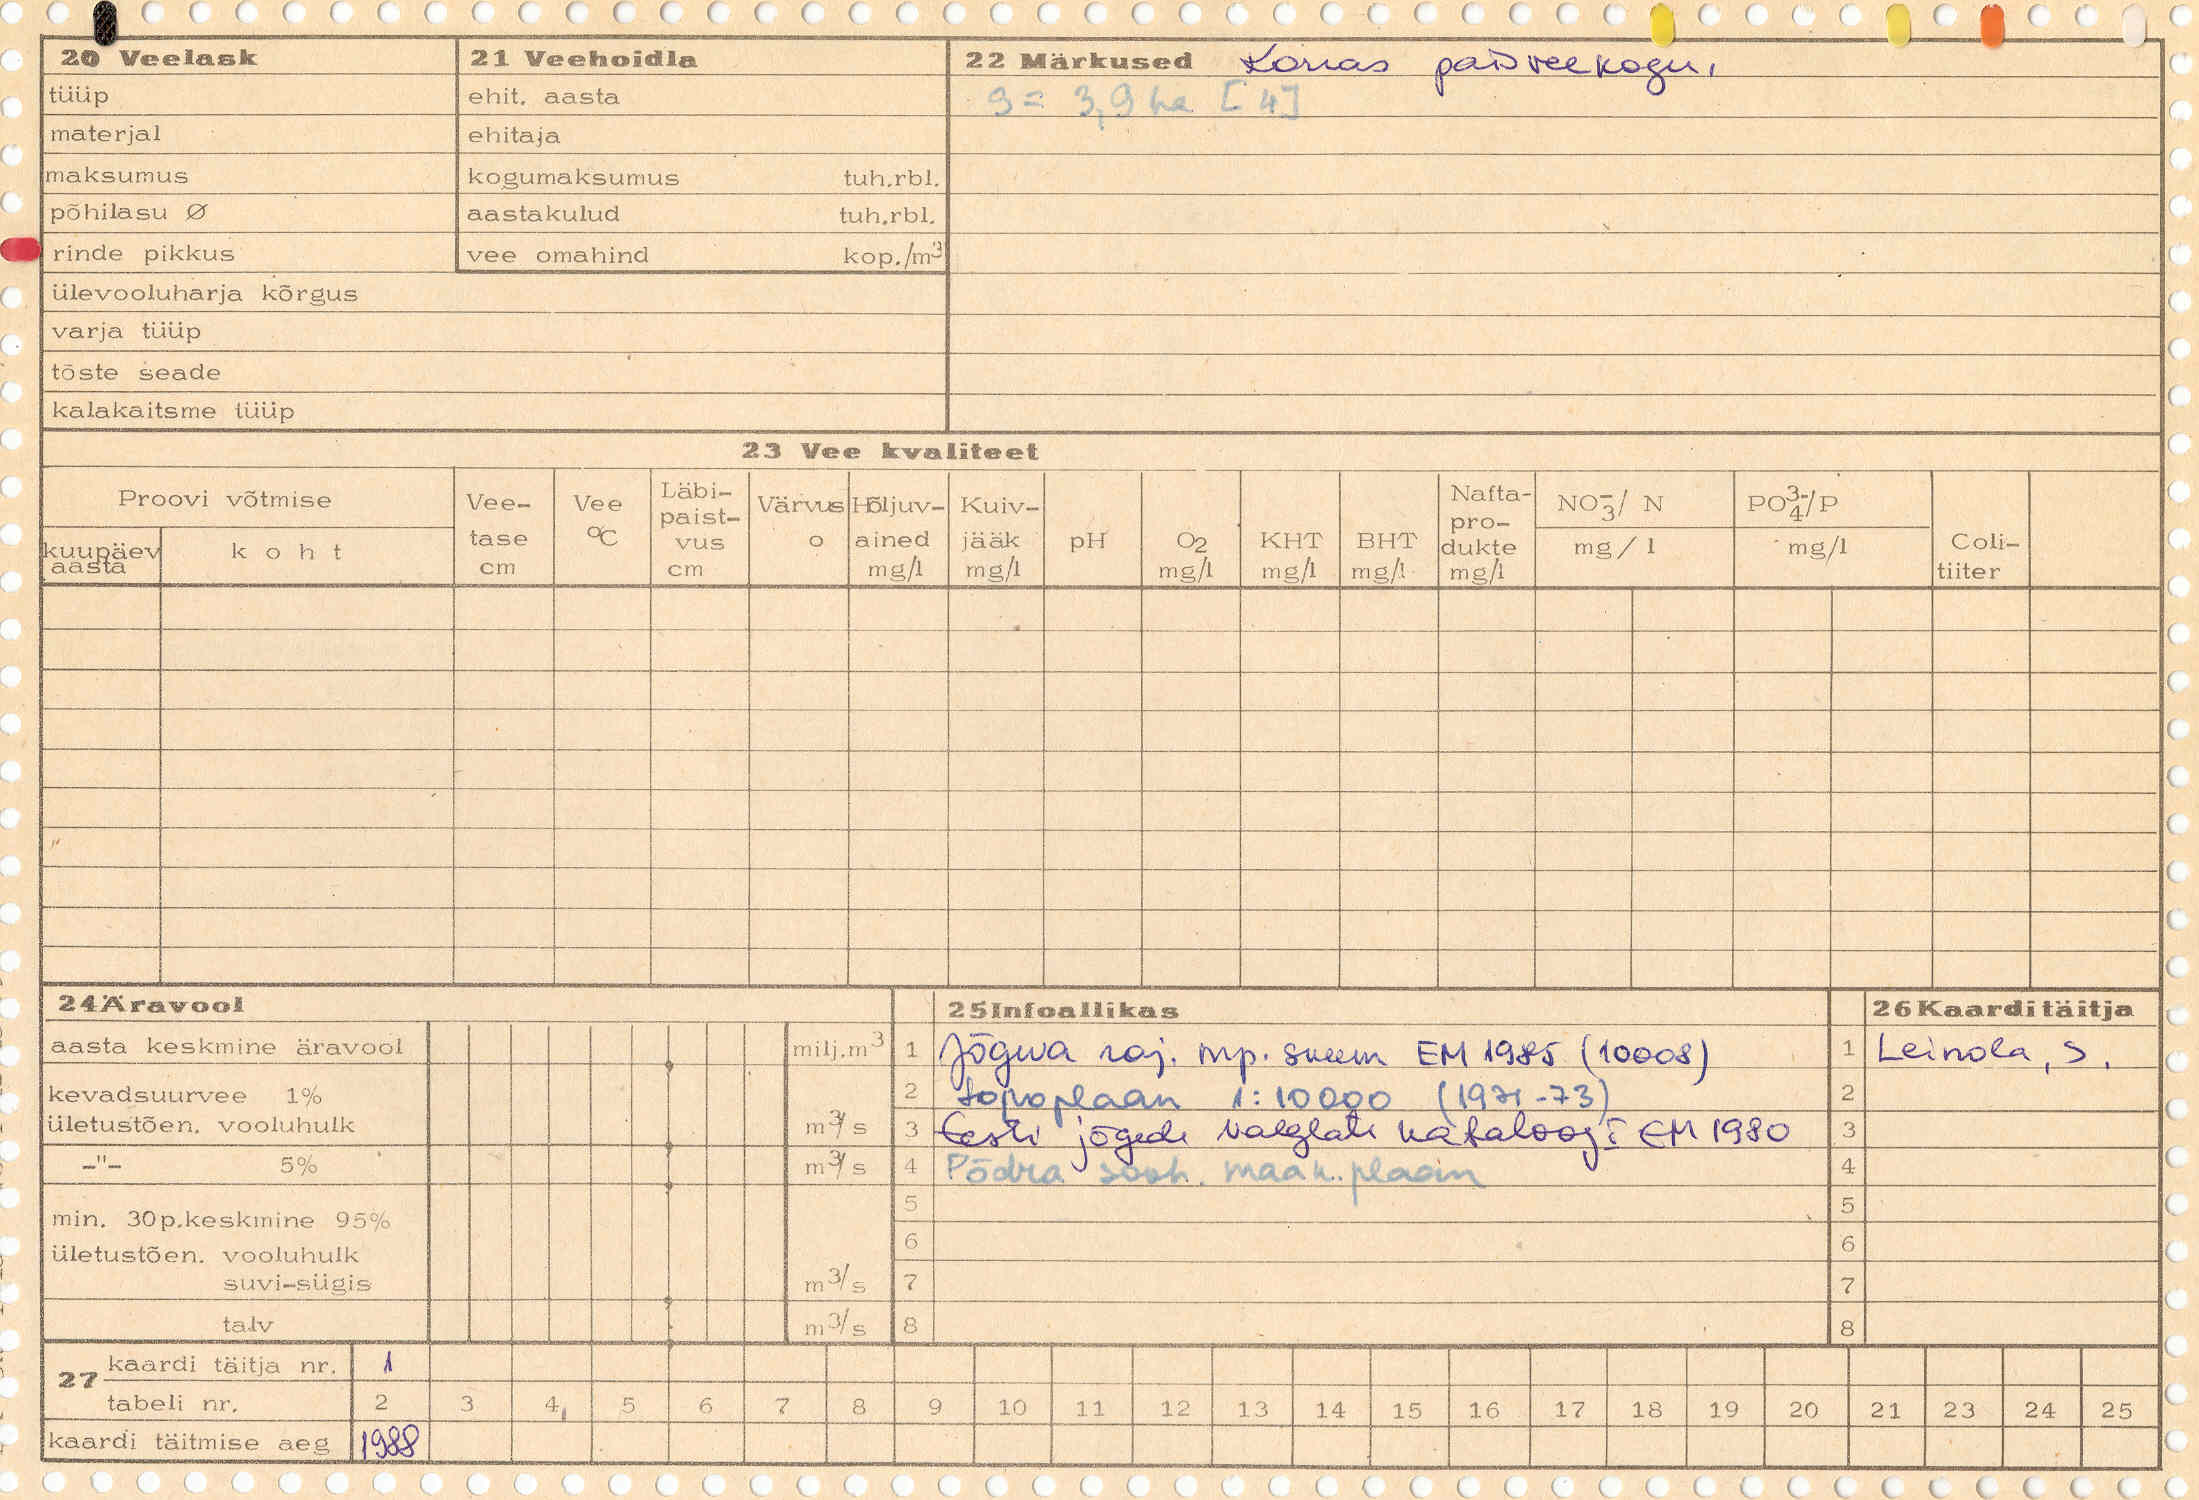 20 Veelask
21 Veehoidla
22 Märkused Korras paisveekogu.
tüüp
ehit. aasta
S = 3,9 ha [4]
materjal
ehitaja
maksumus
kogumaksumus tuh.rbl.
põhilasu Ø
aastakulud tuh.rbl.
rinde pikkus
vee omahind kop./m³
ülevooluharja kõrgus
varja tüüp
tõste seade
kalakaitsme tüüp
23 Vee kvaliteet
Proovi võtmise
kuupäev aasta
k o h t
Vee-
tase
cm
Vee
°C
Läbi-
paist-
vus
cm
Värvus
o
Hõljuv-
ained
mg/l
Kuiv-
jääk
mg/l
pH
O2
mg/l
KHT
mg/l
BHT
mg/l
Nafta-
pro-
dukte
mg/l
NO3⁻/ N
mg/l
PO4³⁻/P
mg/l
Coli-
tiiter
24 Äravool
aasta keskmine äravool milj.m³
kevadsuurvee 1%
ületustõen. vooluhulk m³/s
-"- 5% m³/s
min. 30p.keskmine 95%
ületustõen. vooluhulk
suvi-sügis m³/s
talv m³/s
25 Infoallikas
1 Jõgeva raj. mp. skeem EM 1985 (10008)
2 Topoplaan 1:10000 (1971-73)
3 Eesti jõgede valglate kataloog I EM 1980
4 Põdra sovh. maak. plaan
5
6
7
8
26 Kaarditäitja
1 Leinola, S.
2
3
4
5
6
7
8
27
kaardi täitja nr. 1
tabeli nr. 2 3 4 5 6 7 8 9 10 11 12 13 14 15 16 17 18 19 20 21 23 24 25
kaardi täitmise aeg 1988